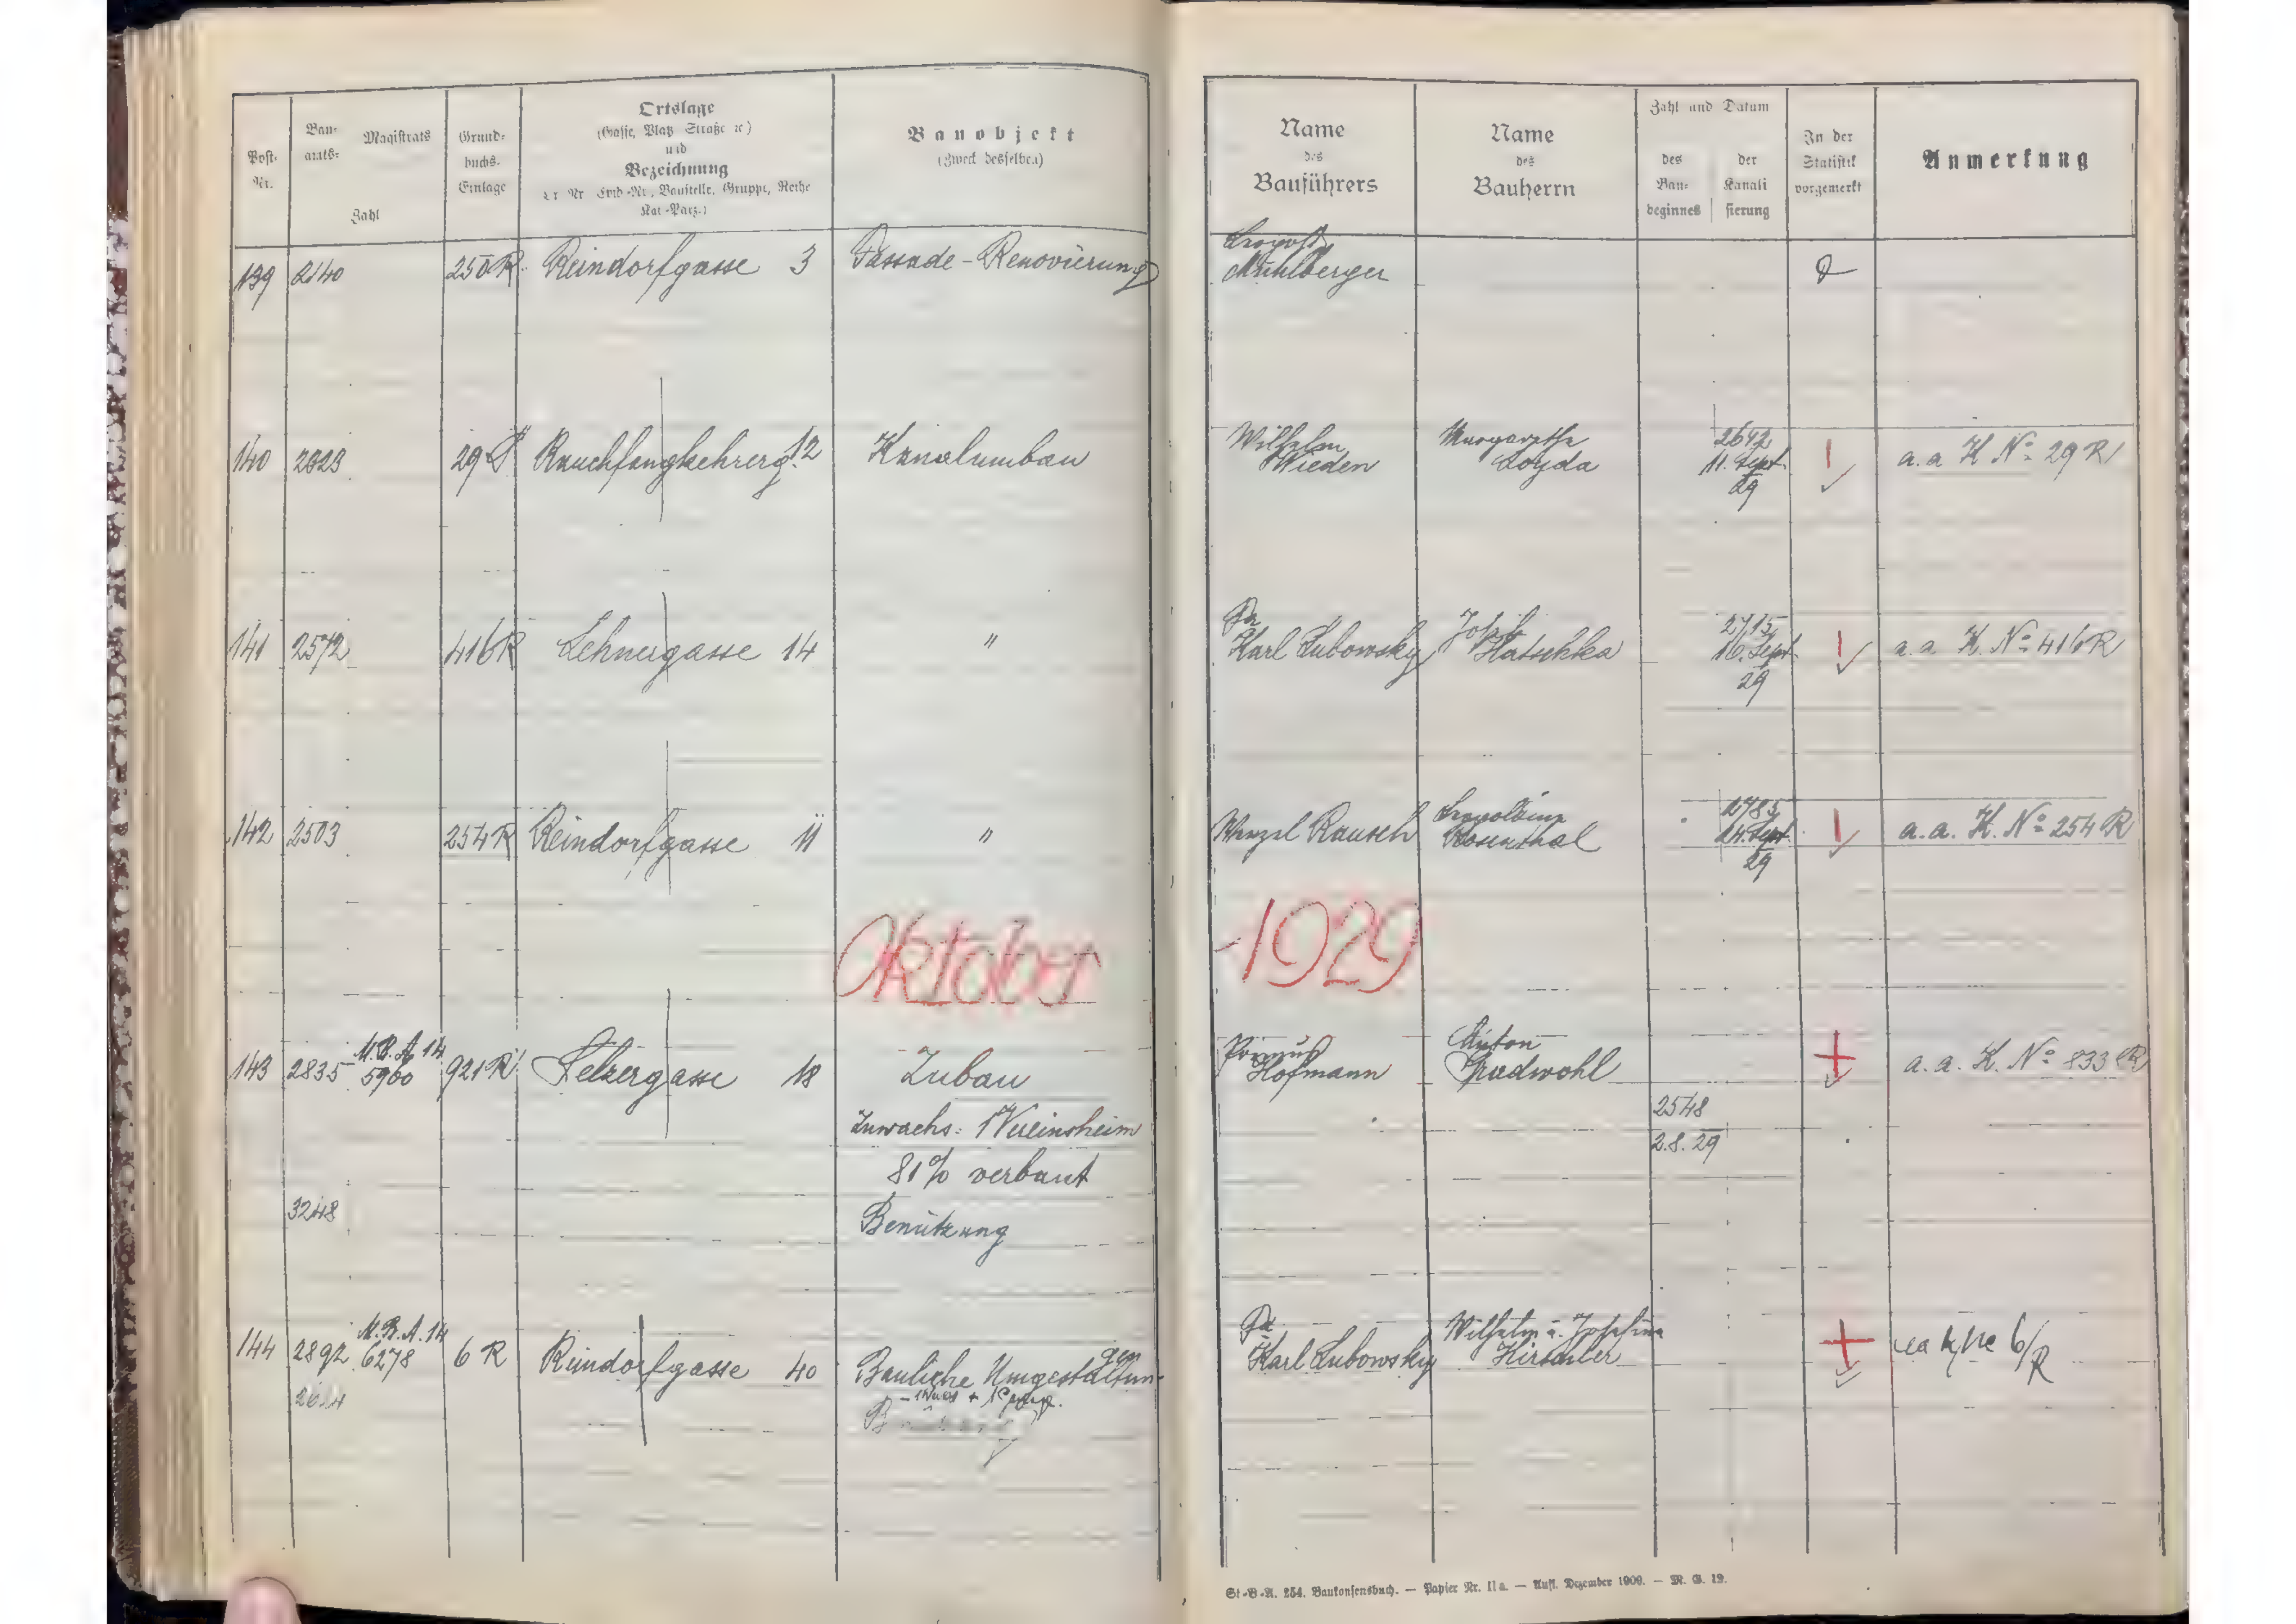 Post-Nr.
Bauamts-
Magistrats
Zahl
Grundbuchs-Einlage
Ortslage
(Gasse, Platz Straße ꝛc)
und
Bezeichnung
Kat-Parz.)
Bauobjekt
(Zweck desselben)
Name
des
Bauführers
Name
des
Bauherrn
Zahl und Datum
des Baubeginnes
der Kanalisierung
In der Statistik vorgemerkt
Anmerkung
139 2140 250 R. Reindorfgasse 3 Fassade-Renovierung Leopold Mühlberger
140 2823 29 Rauchfangkehrerg. 12 Kanalumbau Wilhelm Wieden Margarethe Loyda 2642 11. Sept. 29 a.a K No 29 R
141 2572 416 R Lehnergasse 14 " Fa Karl Lubowsky Josef Hatschka 2715 16. Sept 29 a.a K. No 416 R
142 2503 254 R Reindorfgasse 11 " Wenzel Rausch Leopoldine Rosenthal 2785 24. Sept. 29 a.a. K. No 254 R
Oktober 1929
143 2835 M.B.A 14 5960 921 R Selzergasse 18 Zubau Hofmann Anton Gradwohl a.a. K. No 833 R
Zuwachs: 1 Vereinsheim 2548
81% verbaut 2.8.29
3248 Benützung
144 2892 M.B.A. 14 6278 6 R Reindorfgasse 40 Bauliche Umgestaltungen Fa. Karl Lubowsky Wilhelm u. Josefine 6/R
St-B-A. 254. Baukonsensbuch. — Papier Nr. II a. — Aufl. Dezember 1909. — M. G. 19.